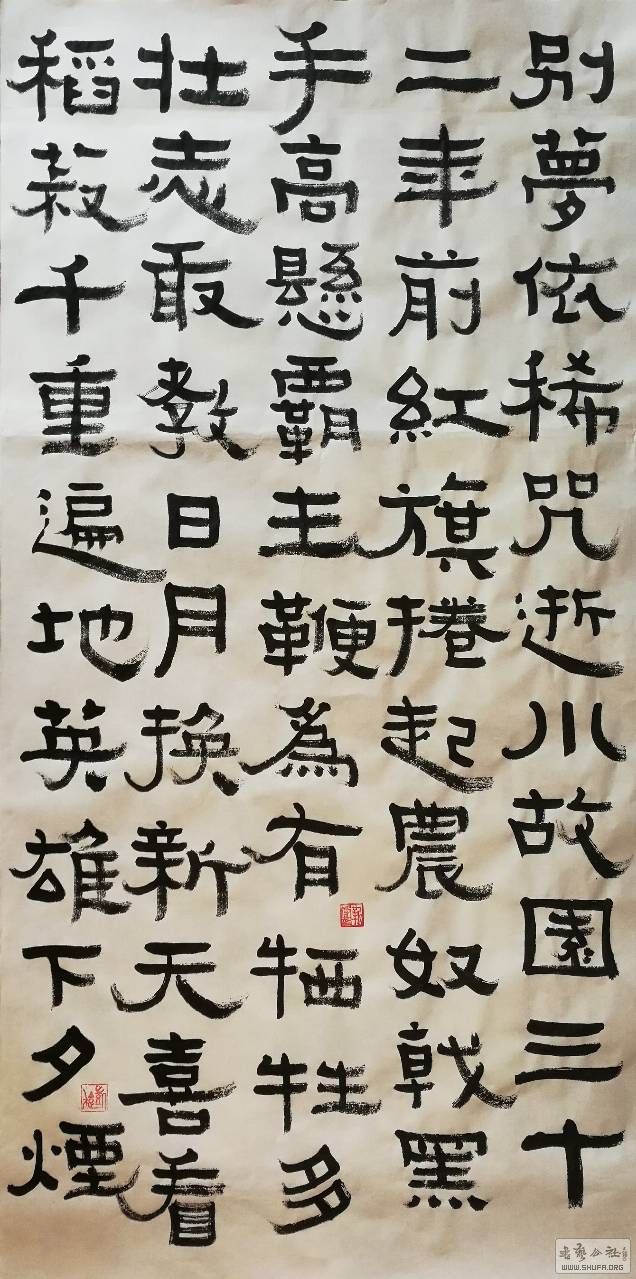 别夢依稀咒逝川故園三十
二年前紅旗捲起農奴戟黑
手高懸覇主鞭為有牺牲多
壮志敢教日月换新天喜看
稻菽千重遍地英雄下夕煙
书艺公社
WWW.SHUFA.ORG